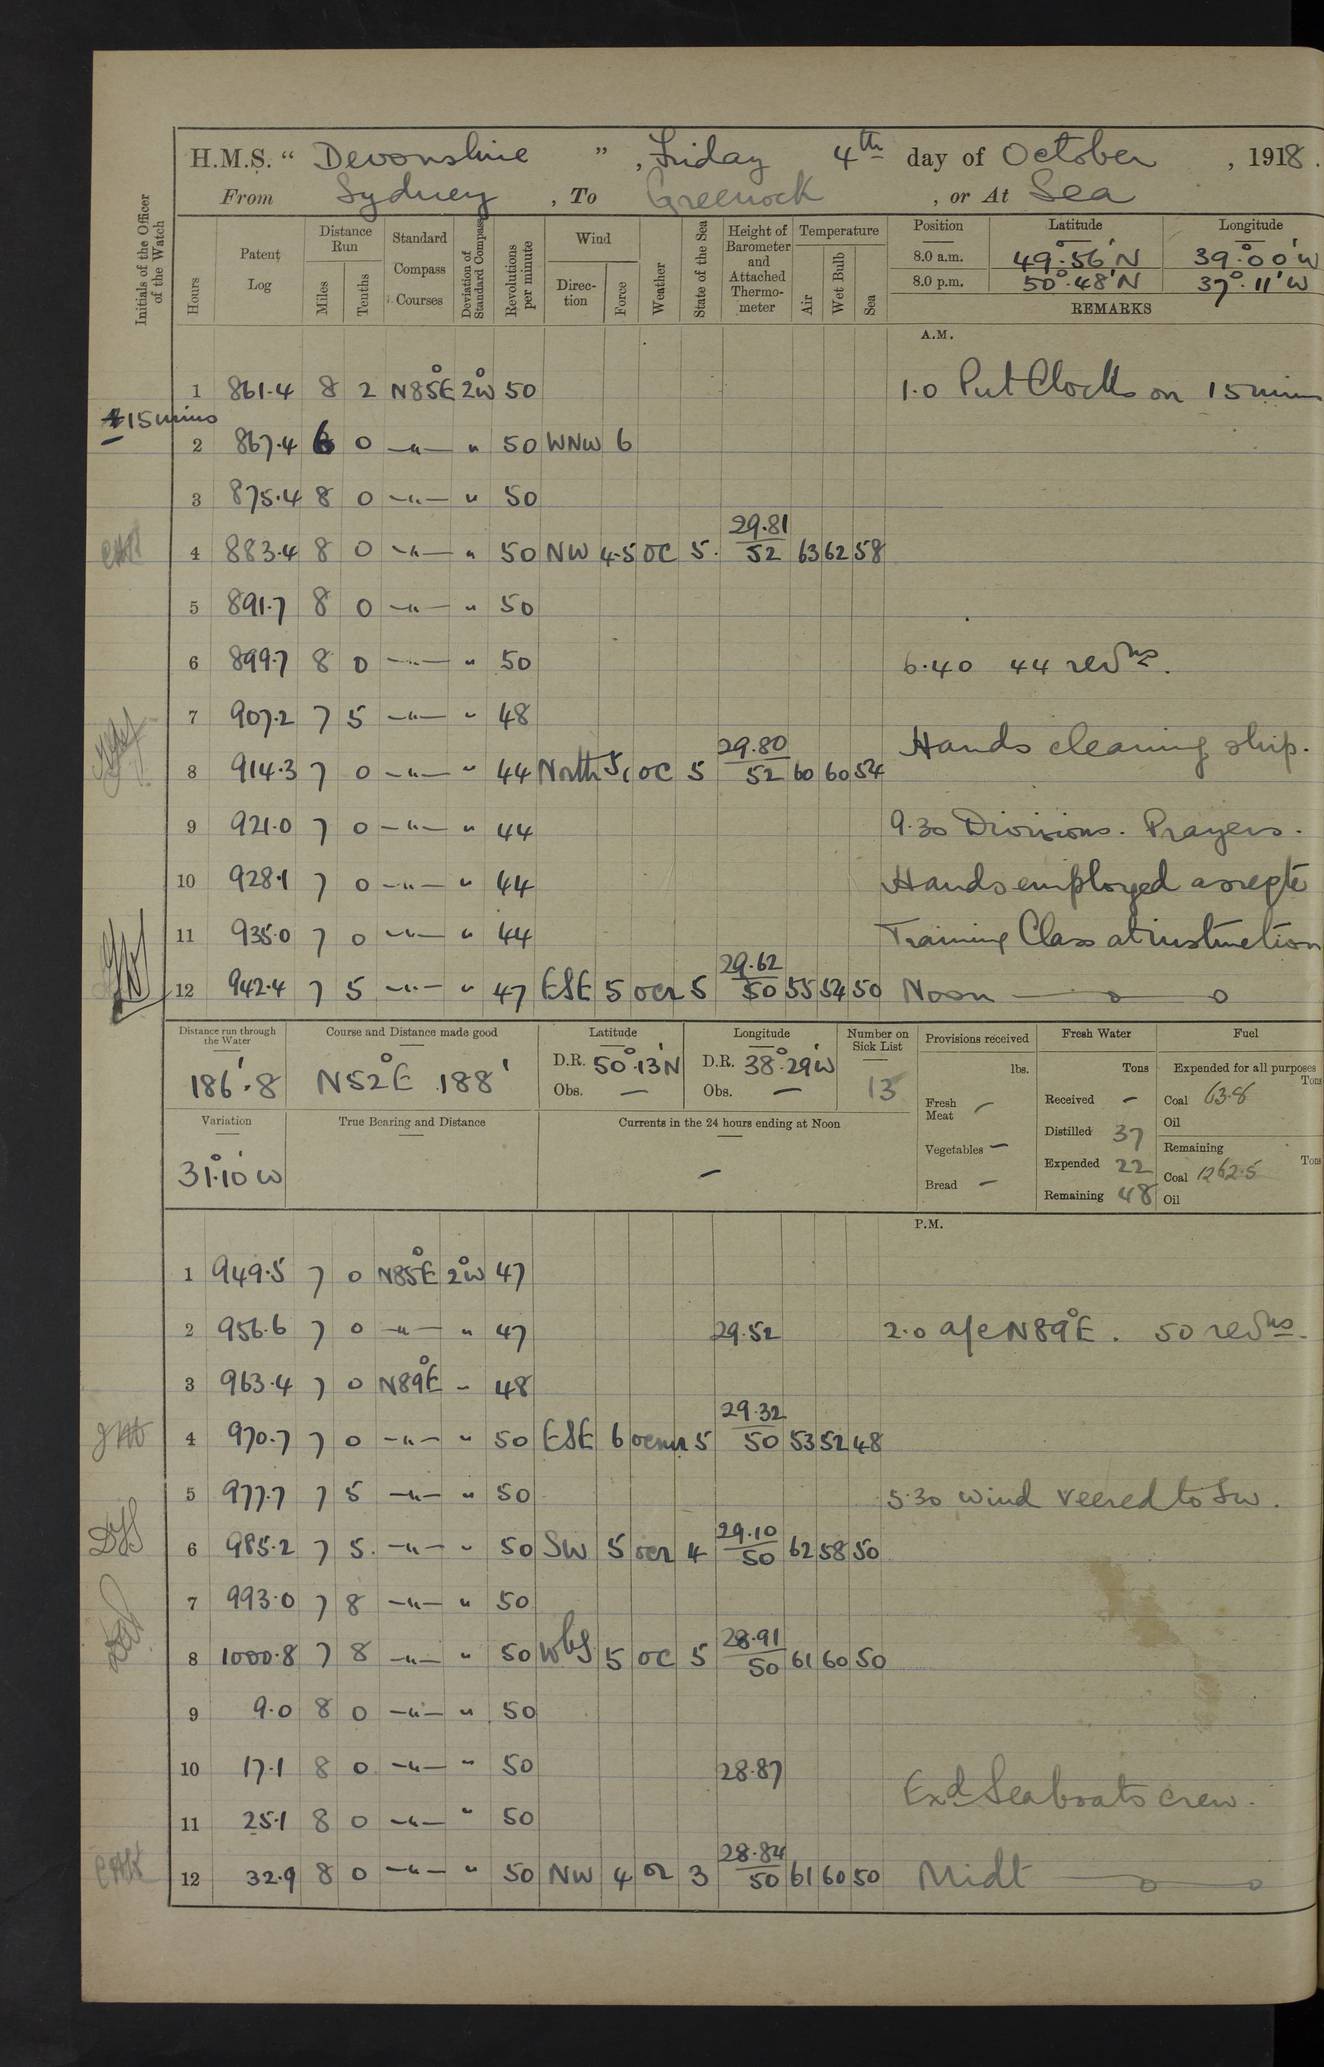 H.M.S. “ Devonshire ” , Friday 4th day of October , 1918 .
From Sydney , To Greenock , or At Sea
Initials of the Officer of the Watch
Hours
Patent Log
Distance Run
Miles
Tenths
Standard Compass Courses
Deviation of Standard Compass
Revolutions per minute
Wind
Direction
Force
Weather
State of the Sea
Height of Barometer and Attached Thermometer
Temperature
Air
Wet Bulb
Sea
Position Latitude Longitude
8.0 a.m. 49°.56'N 39°.00'W
8.0 p.m. 50°.48'N 37°.11'W
REMARKS
A.M.
1 861.4 8 2 N85°E 2°W 50 1.0 Put Clocks on 15 mins
+15 mins
2 867.4 6 0 —"— " 50 WNW 6
3 875.4 8 0 —"— " 50
4 883.4 8 0 —"— " 50 NW 4-5 OC 5. 29.81/52 63 62 58
5 891.7 8 0 —"— " 50
6 899.7 8 0 —"— " 50 6.40 44 revns.
7 907.2 7 5 —"— " 48
Hands cleaning ship.
8 914.3 7 0 —"— " 44 North OC 5 29.80/52 60 60 54
9 921.0 7 0 —"— " 44 9.30 Divisions. Prayers.
10 928.1 7 0 —"— " 44 Hands employed as reqte
11 935.0 7 0 —"— " 44 Training Class at instruction
12 942.4 7 5 —"— " 47 ESE 5 ocr 5 29.62/50 55 54 50 Noon
Distance run through the Water
186'.8
Course and Distance made good
N52°E 188'
Latitude
D.R. 50°.13'N
Obs. —
Longitude
D.R. 38°.29'W
Obs. —
Number on Sick List
13
Variation
31°.10'W
True Bearing and Distance
Currents in the 24 hours ending at Noon
—
Provisions received
lbs.
Fresh Meat —
Vegetables —
Bread —
Fresh Water
Tons
Received —
Distilled 37
Expended 22
Remaining 48
Fuel
Expended for all purposes
Tons
Coal 63.8
Oil
Remaining
Tons
Coal 1262.5
Oil
P.M.
1 949.5 7 0 N85°E 2°W 47
2 956.6 7 0 —"— " 47 29.52 2.0 a/c N89°E. 50 revns.
3 963.4 7 0 N89°E " 48
4 970.7 7 0 —"— " 50 ESE 6 ocmr 5 29.32/50 53 52 48
5 977.7 7 5 —"— " 50 5.30 wind veered to SW.
6 985.2 7 5. —"— " 50 SW 5 ocr 4 29.10/50 62 58 50
7 993.0 7 8 —"— " 50
8 1000.8 7 8 —"— " 50 WbS 5 OC 5 28.91/50 61 60 50
9 9.0 8 0 —"— " 50
10 17.1 8 0 —"— " 50 28.87
Exd Seaboats crew.
11 25.1 8 0 —"— " 50
12 32.9 8 0 —"— " 50 NW 4 or 3 28.84/50 61 60 50 Midt